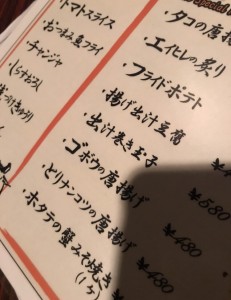 トマトスライス
おつまみ魚フライ
チャンジャ
・タコの唐揚
・エイヒレの炙り
・フライドポテト
・揚げ出汁豆腐
・出汁巻き玉子
・ゴボウの唐揚げ
・とリナンコツの唐揚げ
・ホタテの蟹みそ焼き
(1ヶ)
¥580
¥480
¥480